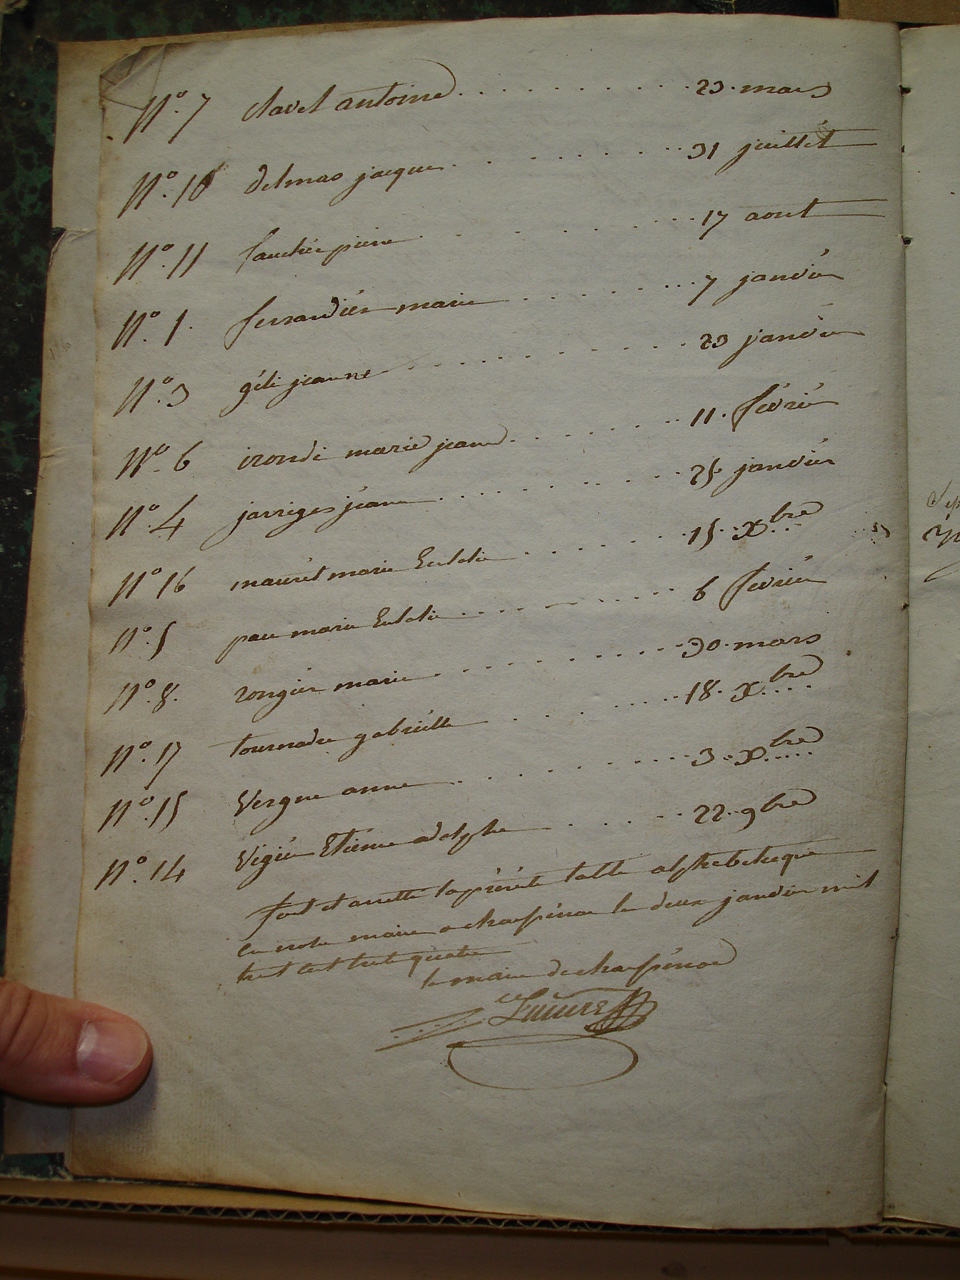 N.º 7 clavel antoine . . . . . . . . . . . 23 . mars
N.º 10 delmas jacque . . . . . . . . . 31 juillét
N.º 11 fauchér pierre . . . . . . . . . 17 aout
N.º 1 . ferrandiér marie . . . . . . . . 7 janviér
N.º 3 géli jeanne . . . . . . . . . . 23 janviér
N.º 6 irondi marie jeanne . . . . . . . 11 . févriér
N.º 4 jarriges jeanne . . . . . . . . . . 25 janviér
N.º 16 maurél marie Eulalie . . . . . . . 15 . xbre
N.º 5 pau marie Eulalie . . . . . . . . 6 févriér
N.º 8 . rongiér marie . . . . . . . . . 30 . mars
N.º 17 tournadre gabriélle . . . . . . . 18 . xbre
N.º 15 Vergne anne . . . . . . . . . . 3 . xbre
N.º 14 Vigiér Etiénne adolphe . . . . . . 22 . 9bre
fait et arretté la présénte table alphabetique
en notre mairie a le deux janviér mil
huit cent trente quatre
le maire de